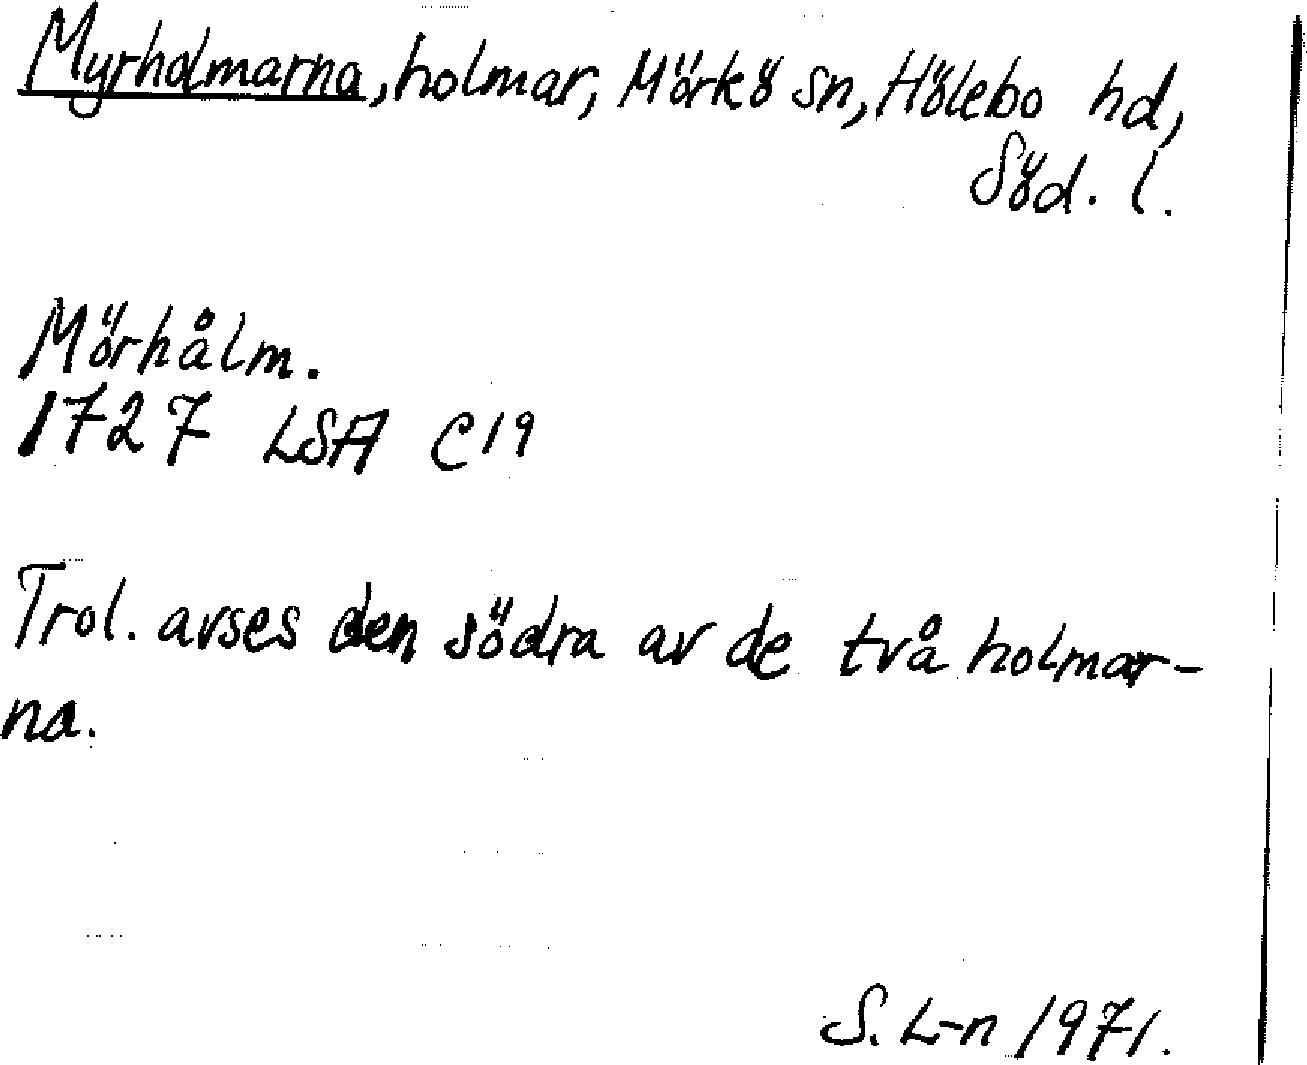 Myrholmarna, holmar, Mörkö sn, Hölebo hd,
Söd. l.
Mörhålm.
1727 LSA C19
Trol. avses den södra av de två holmar-
na.
S. L-n 1971.